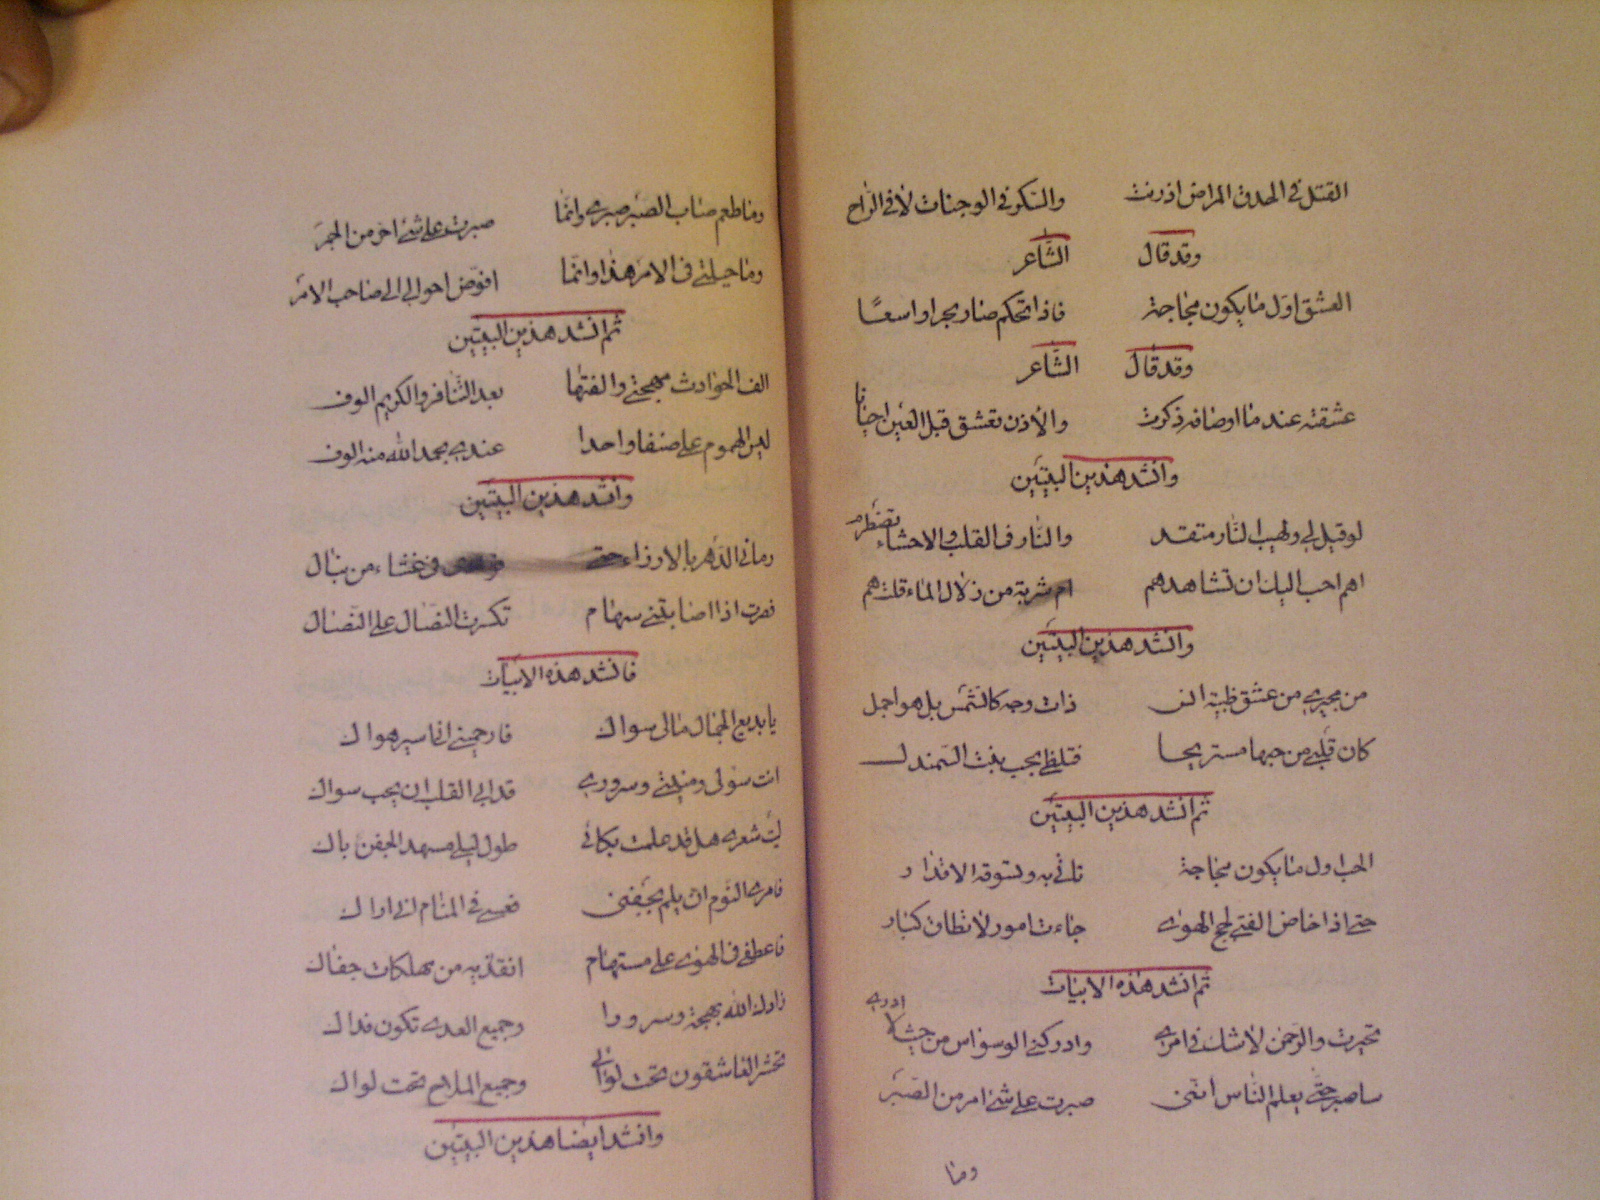 القتل فى الحدق المراض اذ رنت والسكر فى الوجنات لا فى الراح
وقد قال الشاعر
العشق اول ما يكون مجاجة فاذا تحكم صار بحرا واسعا
وقد قال الشاعر
عشقته عند ما اوصافه ذكرت والاذن تعشق قبل العين احيانا
وانشد هذين البيتين
لو قيل لى ولهيب النار متقد والنار فى القلب والاحشاء تضطرم
اهم احب اليك ان تشاهدهم ام شربة من زلال الماء قلت هم
وانشد هذين البيتين
من مجيرى من عشق ظبية انس ذات وجه كالشمس بل هو اجمل
كان قلبى من حبها مستريحا فتلظى بحب بنت السمندل
ثم انشد هذين البيتين
الحب اول ما يكون مجاجة تاتى به وتسوقه الاقدار
حتى اذا خاض الفتى لجج الهوى جاءت امور لا تطاق كبار
ثم انشد هذه الابيات
تحيرت والرحمن لا شك فى امرى وادركنى الوسواس من حيث لا ادرى
ساصبر حتى يعلم الناس اننى صبرت على شئ امر من الصبر
وما
وما طعم صاب الصبر صبرى وانما صبرت على شئ احر من الجمر
وما حيلتى فى الامر هذا وانما افوض احوالى الى صاحب الامر
ثم انشد هذين البيتين
الف الحوادث مهجتى والفتها بعد التنافر والكريم الوف
ليس الهموم على صنفا واحدا عندى بحمد الله منه الوف
وانشد هذين البيتين
رمانى الدهر بالارزاء حتى فى غشاء من نبال
فصرت اذا اصابتنى سهام تكسرت النصال على النصال
فانشد هذه الابيات
يا بديع الجمال مالى سواك فارحمينى انا اسير هواك
انت سؤلى ومنيتى وسرورى قد ابى القلب ان يحب سواك
ليت شعرى هل قد علمت بكائى طول ليلى مسهد الجفن باك
فامرى النوم ان يلم بجفنى فعسى فى المنام انى اراك
فاعطفى فى الهوى على مستهام انقذيه من مهلكات جفاك
زادك الله بهجة وسرورا وجميع العدى تكون فداك
تحشر العاشقون تحت لوائى وجميع الملاح تحت لواك
وانشد ايضا هذين البيتين